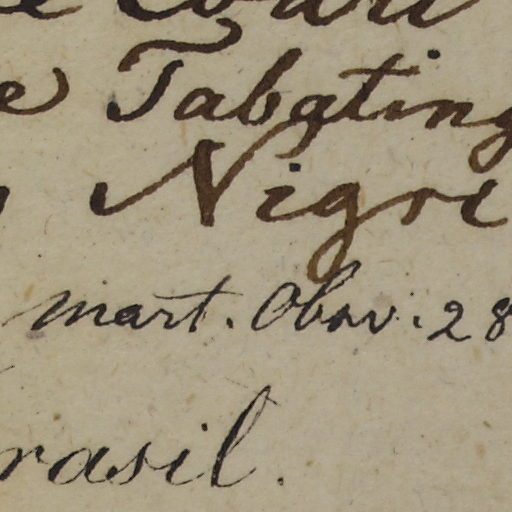 e Tabating
Nigri
mart. Obsv. 28
rasil.